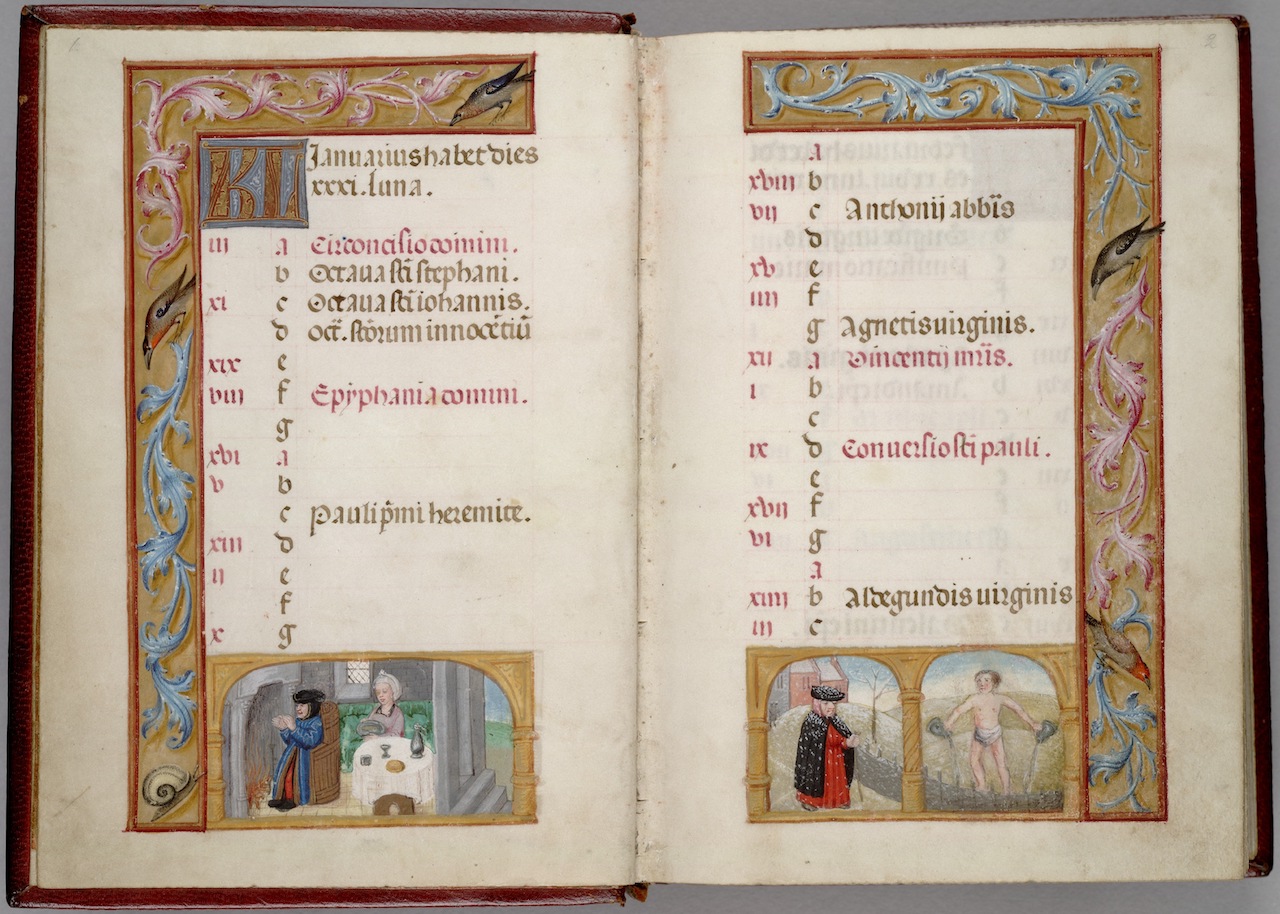 1
KL Januarius habet dies
xxxi. luna.
iii a Circoncisio domini.
b Octaua sc̃i stephani.
xi c Octaua sc̃i iohannis.
d oct̃. sc̃orum innocẽtiũ
xix e
viii f Epyphania domini.
g
xvi a
v b
c Pauli p̃mi heremite.
xiii d
ii e
f
x g
2
a
xviii b
vii c Anthonij abb̃is
d
xv e
iiii f
g Agnetis uirginis.
xii a Vincentij mr̃is.
i b
c
ix d Conuersio sc̃i pauli.
e
xvii f
vi g
a
xiiii b Aldegundis uirginis
iii c